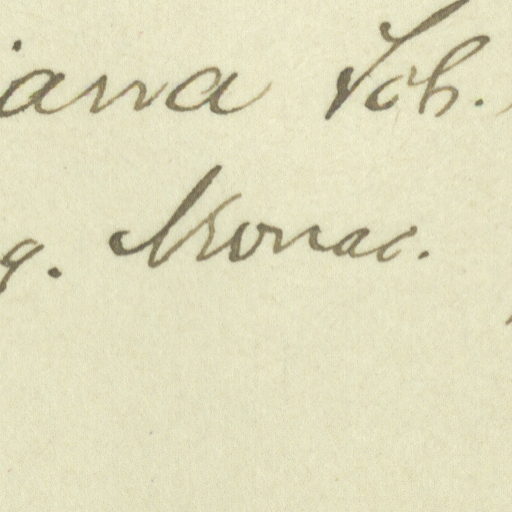 iana Sch.
g. Monac.